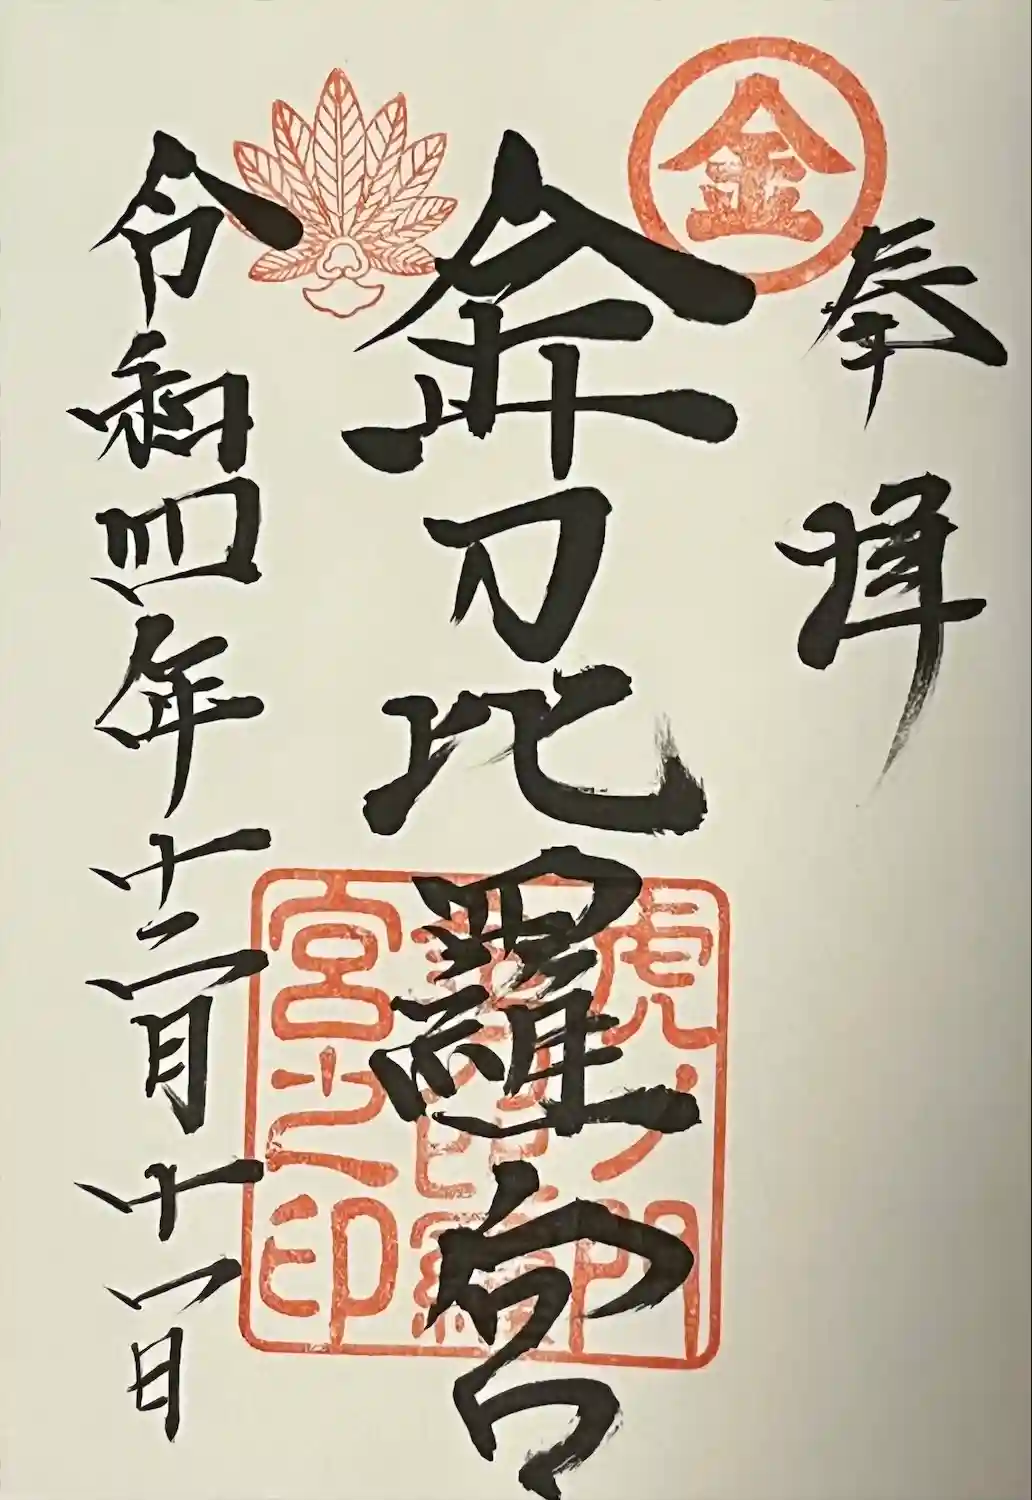 金
奉拝
金刀比羅宮
虎ノ門
宮之印
令和四年十二月十一日